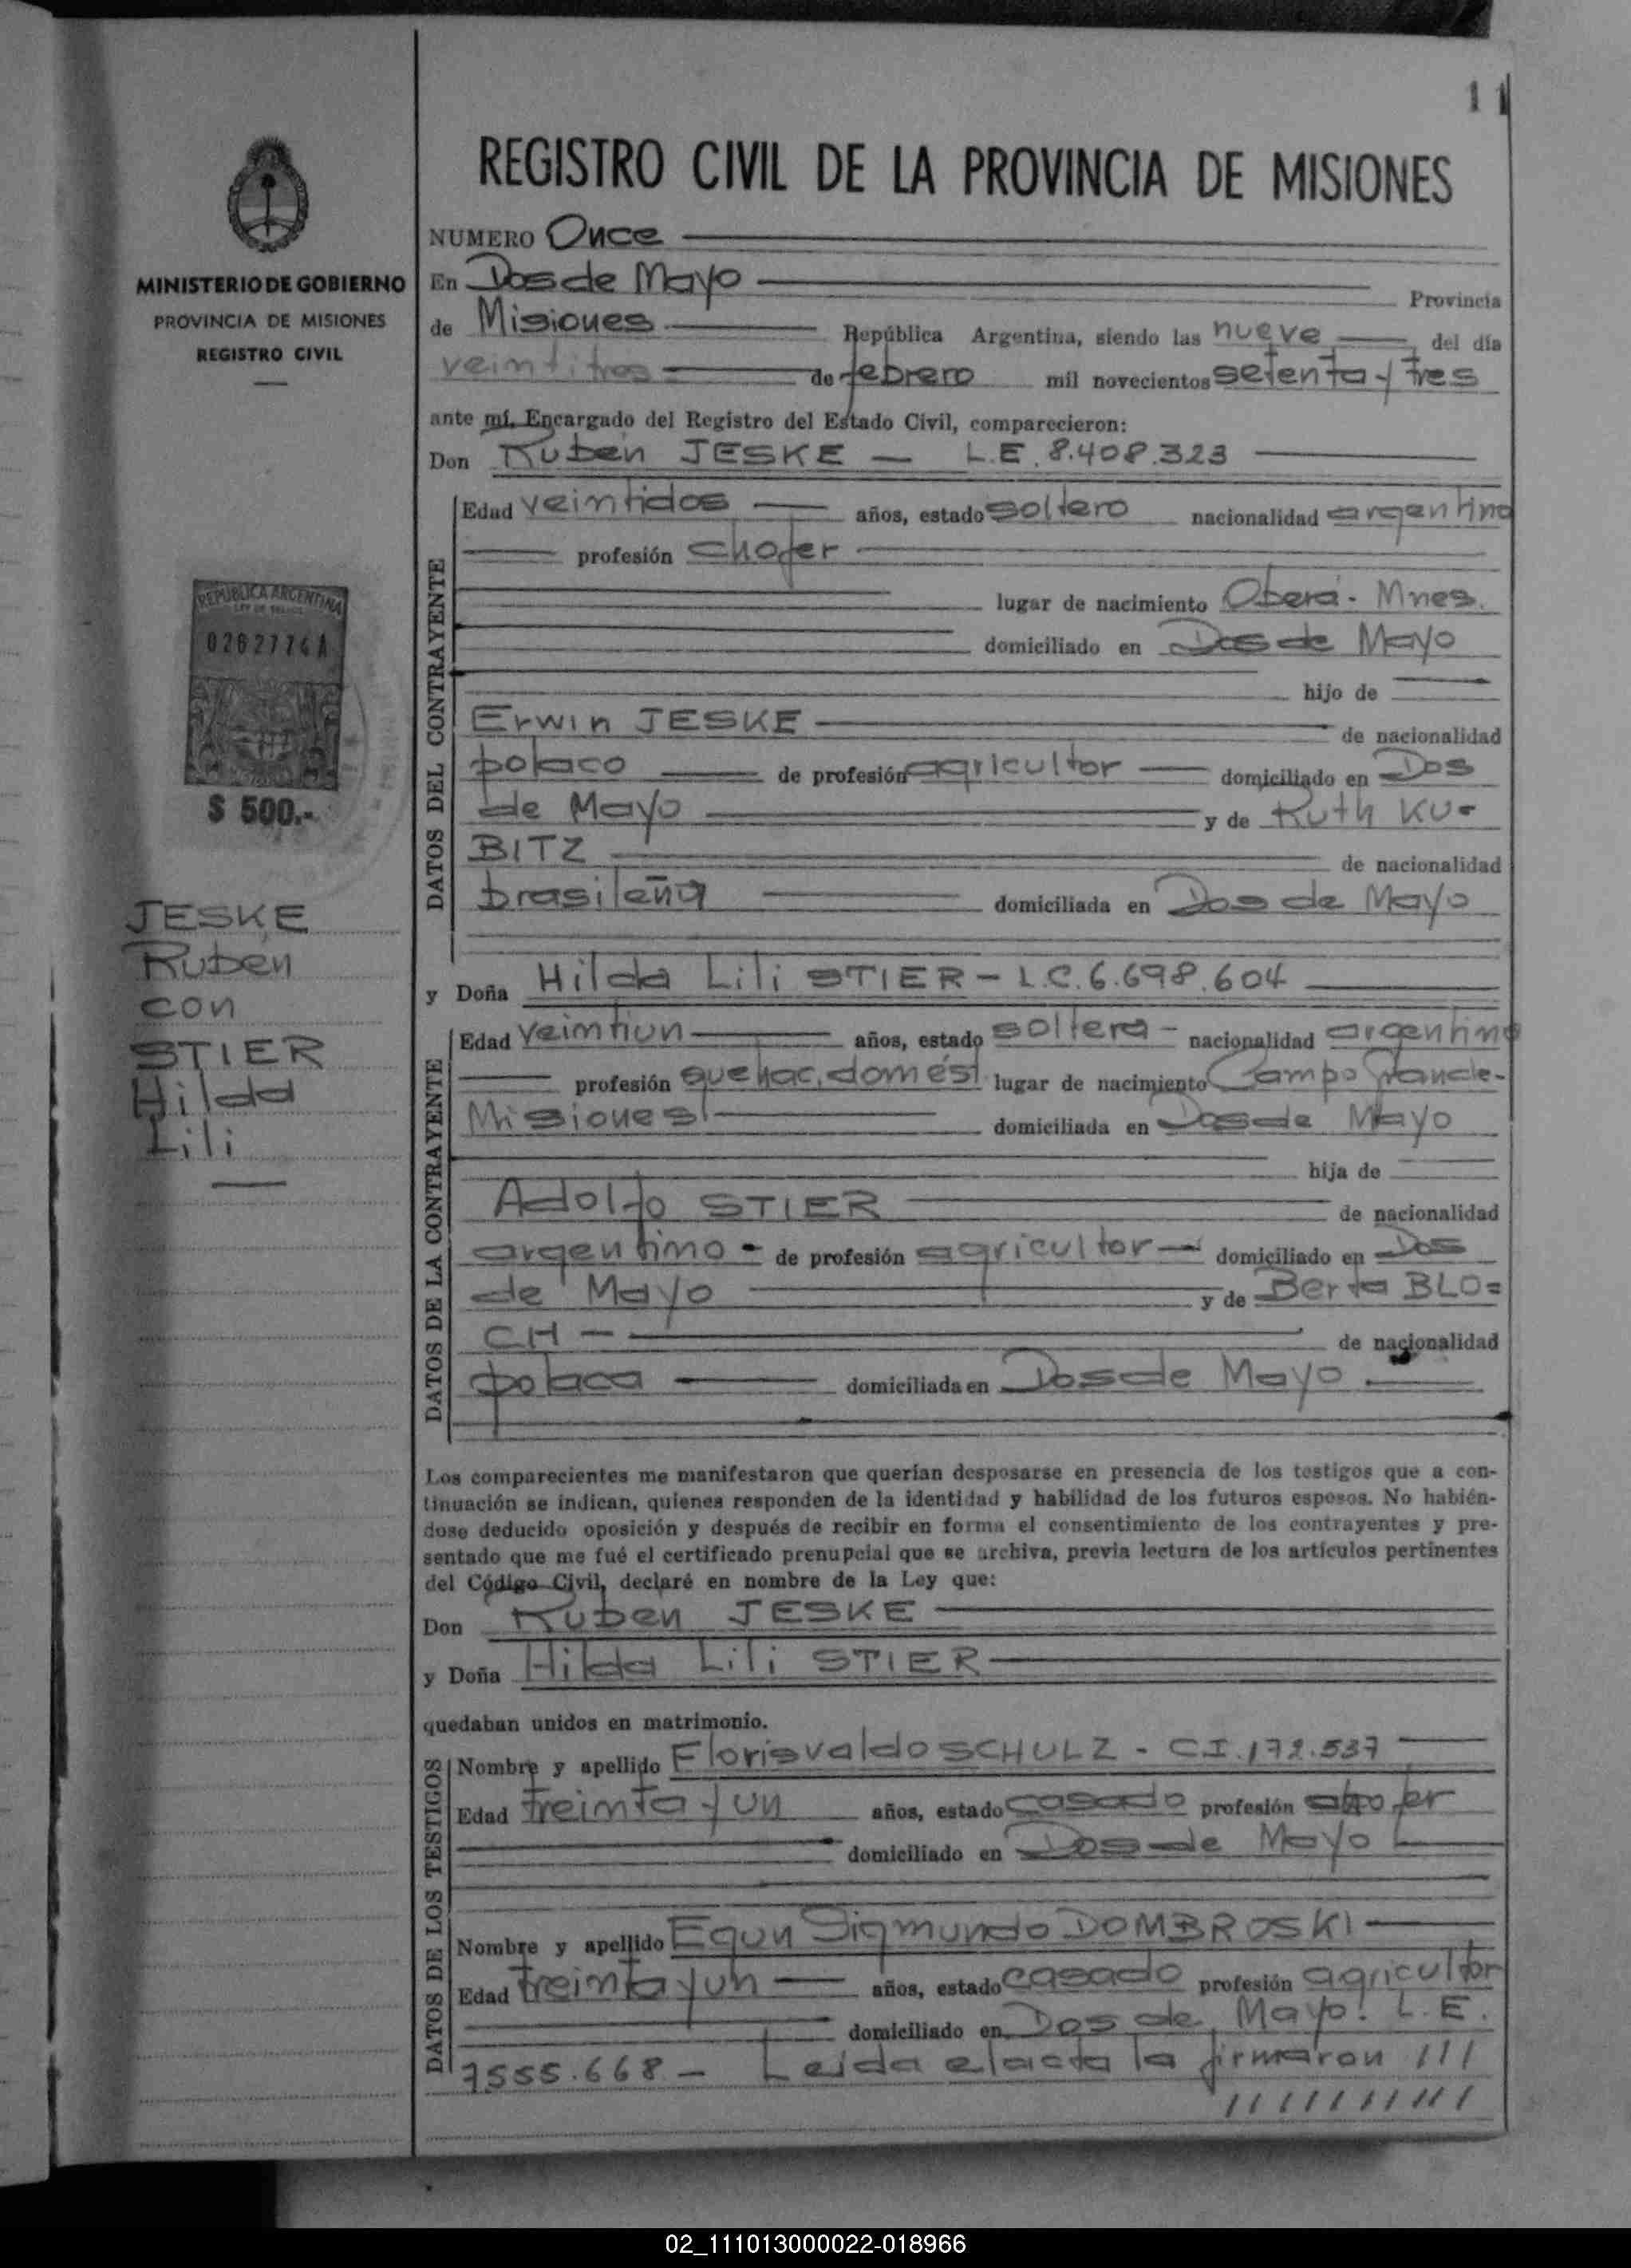 11
REGISTRO CIVIL DE LA PROVINCIA DE MISIONES
MINISTERIO DE GOBIERNO
PROVINCIA DE MISIONES
REGISTRO CIVIL
REPUBLICA ARGENTINA
0262774A
$ 500.-
JESKE
Ruben
con
STIER
Hilda
Lili
NUMERO Once
En Dos de Mayo Provincia
de Misiones República Argentina, siendo las nueve del día
veintitres de febrero mil novecientos setenta y tres
ante mí, Encargado del Registro del Estado Civil, comparecieron:
Don Ruben JESKE — L.E. 8.408.323
DATOS DEL CONTRAYENTE
Edad veintidos años, estado soltero nacionalidad argentino
profesión chofer
lugar de nacimiento Oberá - Mnes.
domiciliado en Dos de Mayo
hijo de
Erwin JESKE de nacionalidad
polaco de profesión agricultor domiciliado en Dos
de Mayo y de Ruth KU=
BITZ de nacionalidad
brasileña domiciliada en Dos de Mayo
y Doña Hilda Lili STIER - L.C. 6.698.604
DATOS DE LA CONTRAYENTE
Edad veintiun años, estado soltera - nacionalidad argentina
profesión quehac. domést. lugar de nacimiento Campo Grande-
Misiones domiciliada en Dos de Mayo
hija de
Adolfo STIER de nacionalidad
argentino - de profesión agricultor domiciliado en Dos
de Mayo y de Berta BLO=
CH — de nacionalidad
polaca domiciliada en Dos de Mayo
Los comparecientes me manifestaron que querían desposarse en presencia de los testigos que a con-
tinuación se indican, quienes responden de la identidad y habilidad de los futuros esposos. No habién-
dose deducido oposición y después de recibir en forma el consentimiento de los contrayentes y pre-
sentado que me fué el certificado prenupcial que se archiva, previa lectura de los artículos pertinentes
del Código Civil, declaré en nombre de la Ley que:
Don Ruben JESKE
y Doña Hilda Lili STIER
quedaban unidos en matrimonio.
DATOS DE LOS TESTIGOS
Nombre y apellido Florisvaldo SCHULZ - C.I. 172.537
Edad treinta y un años, estado casado profesión chofer
domiciliado en Dos de Mayo
Nombre y apellido Egun Sigmundo DOMBROSKI
Edad treinta y un años, estado casado profesión agricultor
domiciliado en Dos de Mayo. L.E.
7555.668 - Leida el acta la firmaron ///
//////////
02_111013000022-018966